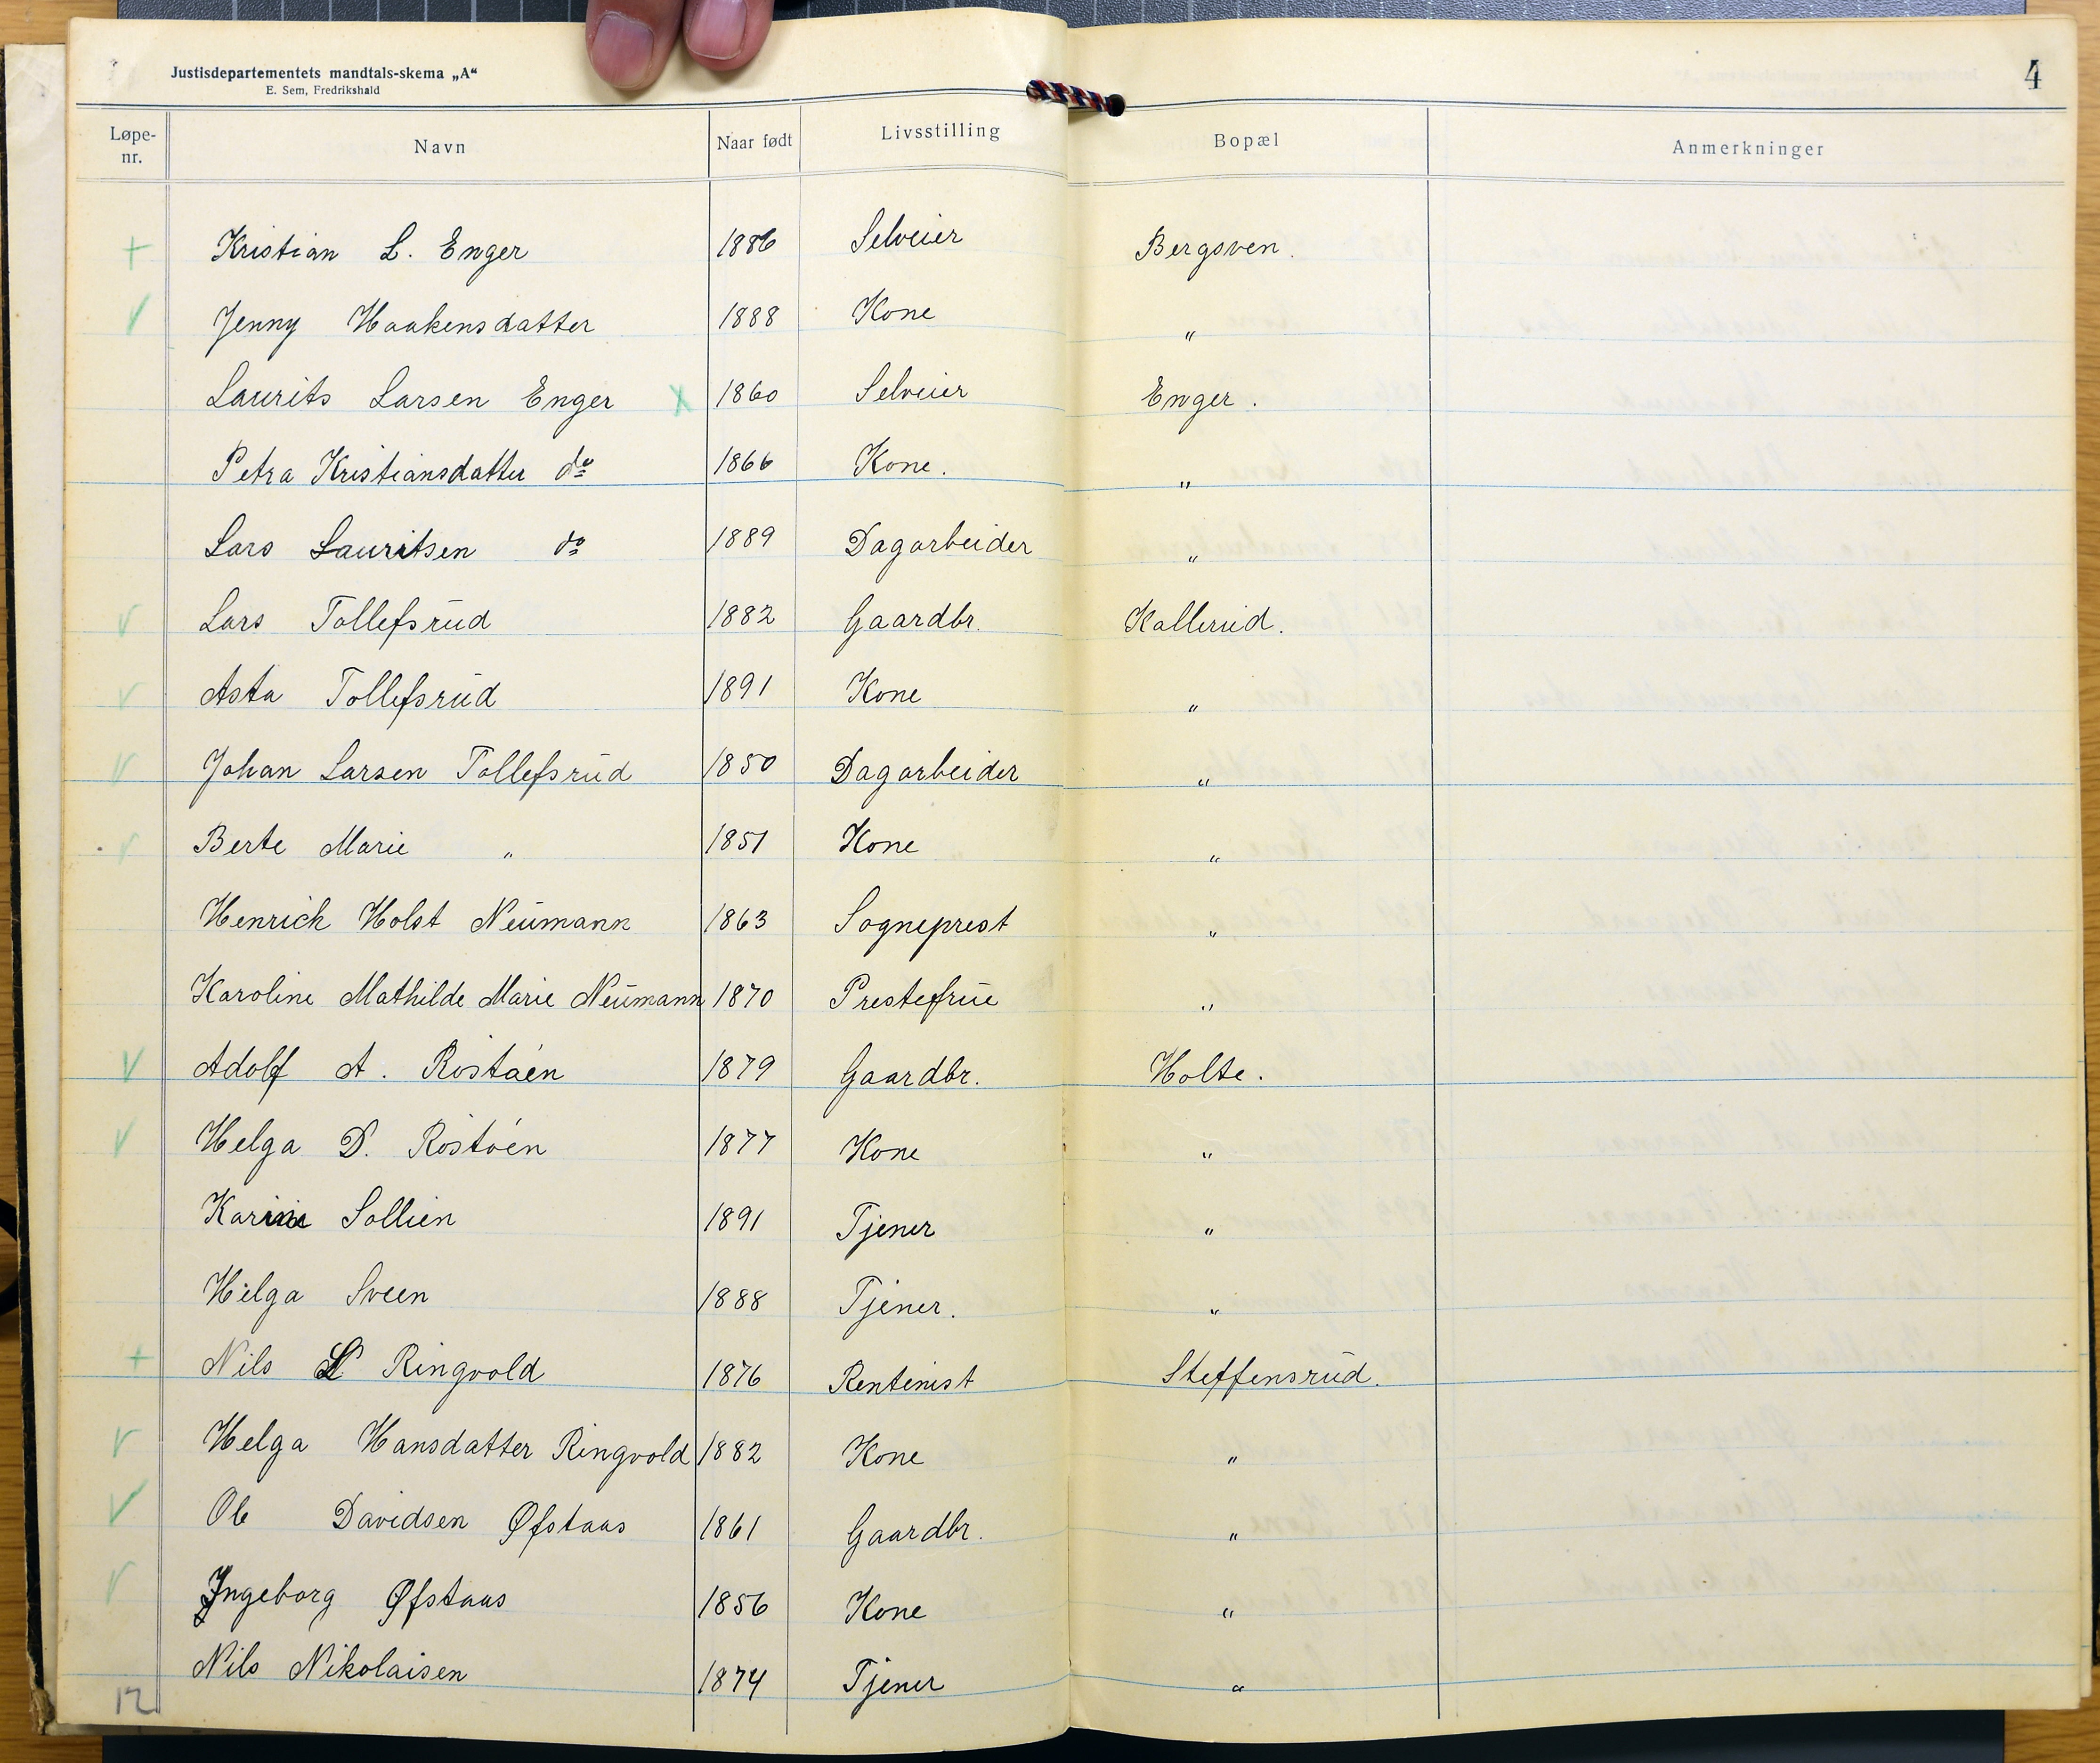 4
Justisdepartementets mandtals-skema „A“
E. Sem, Fredrikshald
Løpe-nr. Navn Naar født Livsstilling Bopæl Anmerkninger
+ Kristian L. Enger 1886 Selveier Bergsven.
√ Jenny Haakensdatter 1888 Kone "
Laurits Larsen Enger x 1860 Selveier Enger.
Petra Kristiansdatter do 1866 Kone. "
Lars Lauritsen do 1889 Dagarbeider "
√ Lars Tollefsrud 1882 Gaardbr. Kallerud.
√ Asta Tollefsrud 1891 Kone "
√ Johan Larsen Tollefsrud 1850 Dagarbeider "
√ Berte Marie " 1851 Kone "
Henrick Holst Neumann 1863 Sogneprest "
Karoline Mathilde Marie Neumann 1870 Prestefrue "
√ Adolf A. Rostøen 1879 Gaardbr. Holte.
√ Helga D. Rostøen 1877 Kone "
Karine Sollien 1891 Tjener "
Helga Sveen 1888 Tjener. "
+ Nils L Ringvold 1876 Rentenist Steffensrud.
√ Helga Hansdatter Ringvold 1882 Kone "
√ Ole Davidsen Øfstaas 1861 Gaardbr. "
√ Ingeborg Øfstaas 1856 Kone "
Nils Nikolaisen 1874 Tjener "
12